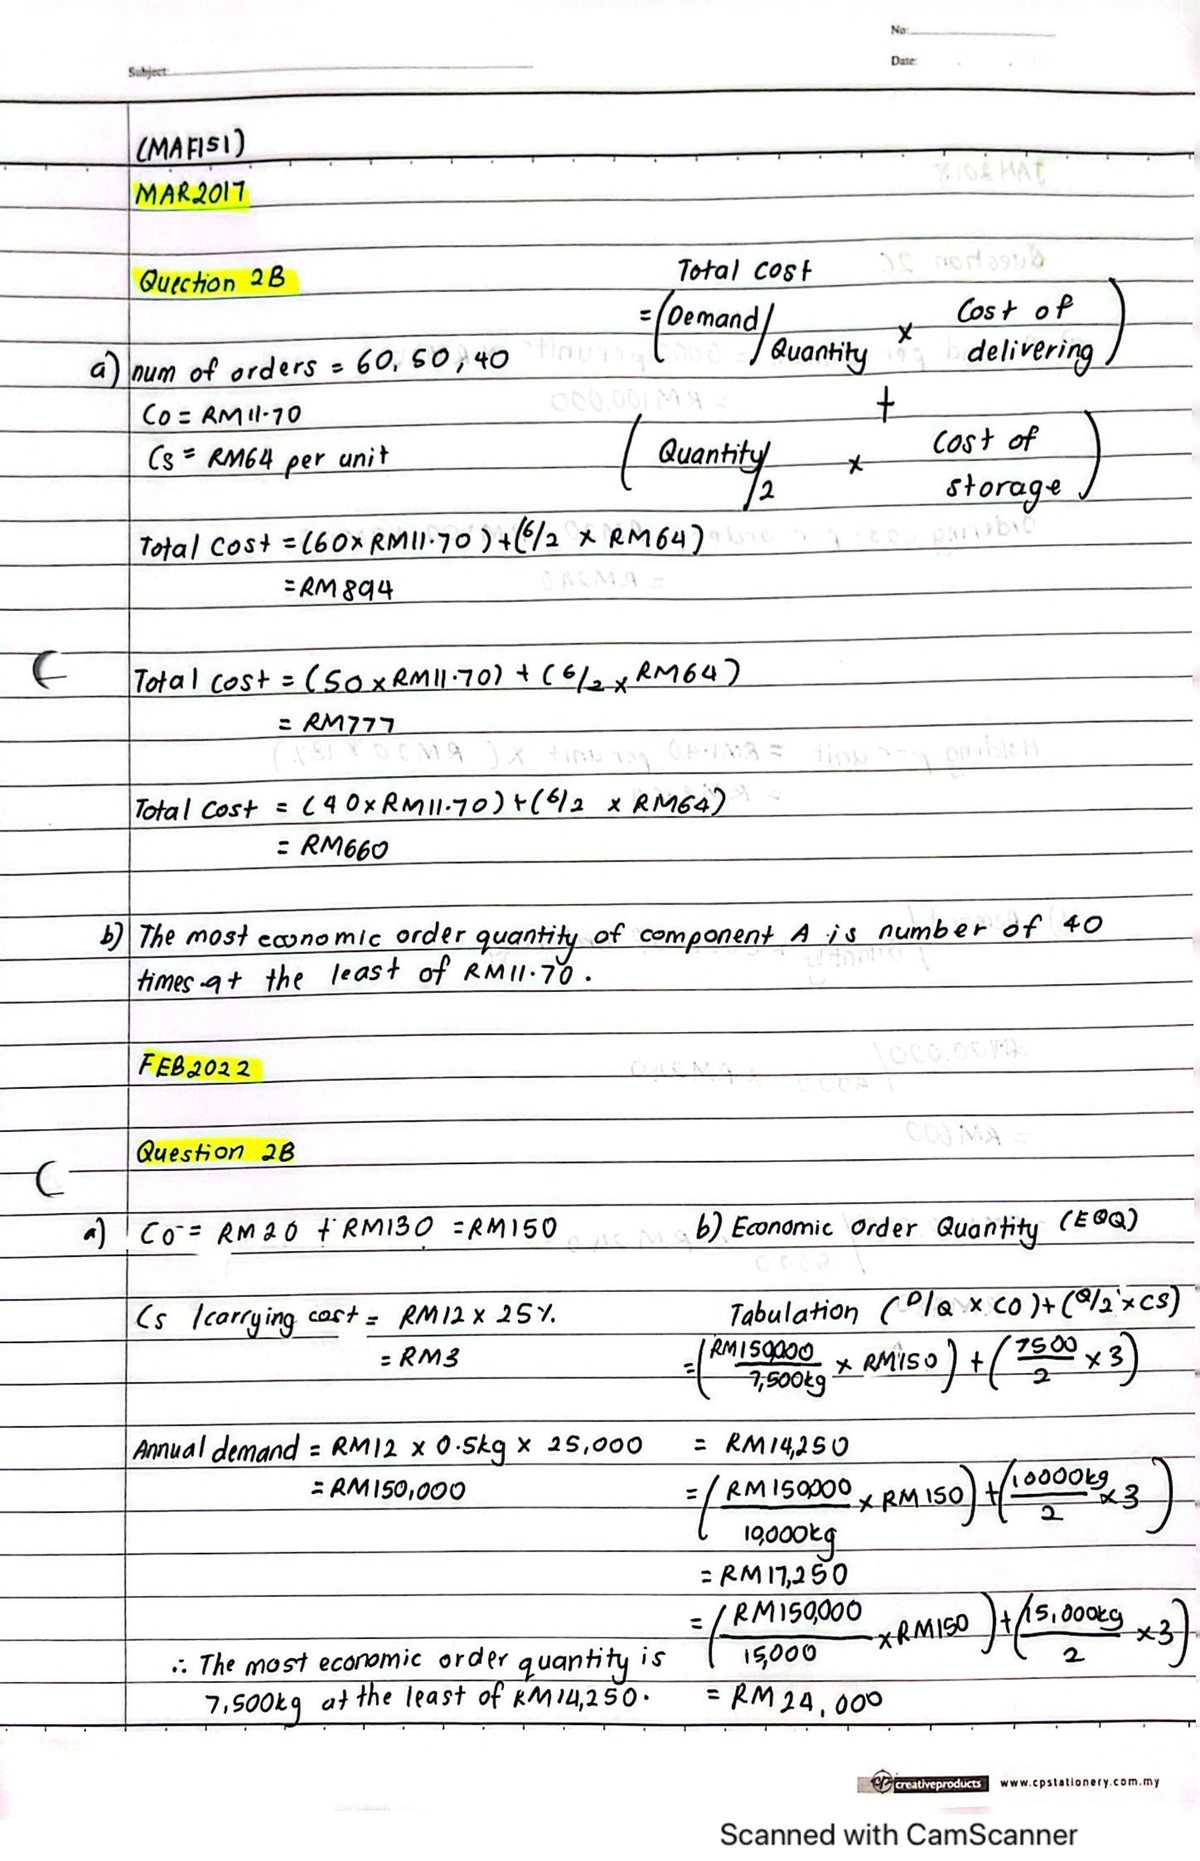 No:
Subject:
Date:
(MAF151)
MAR2017
Question 2B
Total cost
= (Demand/Quantity × Cost of delivering)
+
(Quantity/2 × Cost of storage)
a) num of orders = 60, 50, 40
Co = RM11.70
Cs = RM64 per unit
Total Cost = (60×RM11.70)+(6/2 × RM64)
= RM894
Total cost = (50×RM11.70) + (6/2 × RM64)
= RM777
Total Cost = (40×RM11.70)+(6/2 × RM64)
= RM660
b) The most economic order quantity of component A is number of 40
times at the least of RM11.70.
FEB2022
Question 2B
a) Co = RM20 + RM130 = RM150
Cs /carrying cost = RM12 × 25%
= RM3
Annual demand = RM12 × 0.5kg × 25,000
= RM150,000
∴ The most economic order quantity is
7,500kg at the least of RM14,250.
b) Economic Order Quantity (EOQ)
Tabulation (D/Q × CO)+(Q/2 × CS)
= (RM150,000/7,500kg × RM150) + (7500/2 × 3)
= RM14,250
= (RM150,000/10,000kg × RM150) + (10000kg/2 × 3)
= RM17,250
= (RM150,000/15,000 × RM150) + (15,000kg/2 × 3)
= RM24,000
cp creativeproducts www.cpstationery.com.my
Scanned with CamScanner